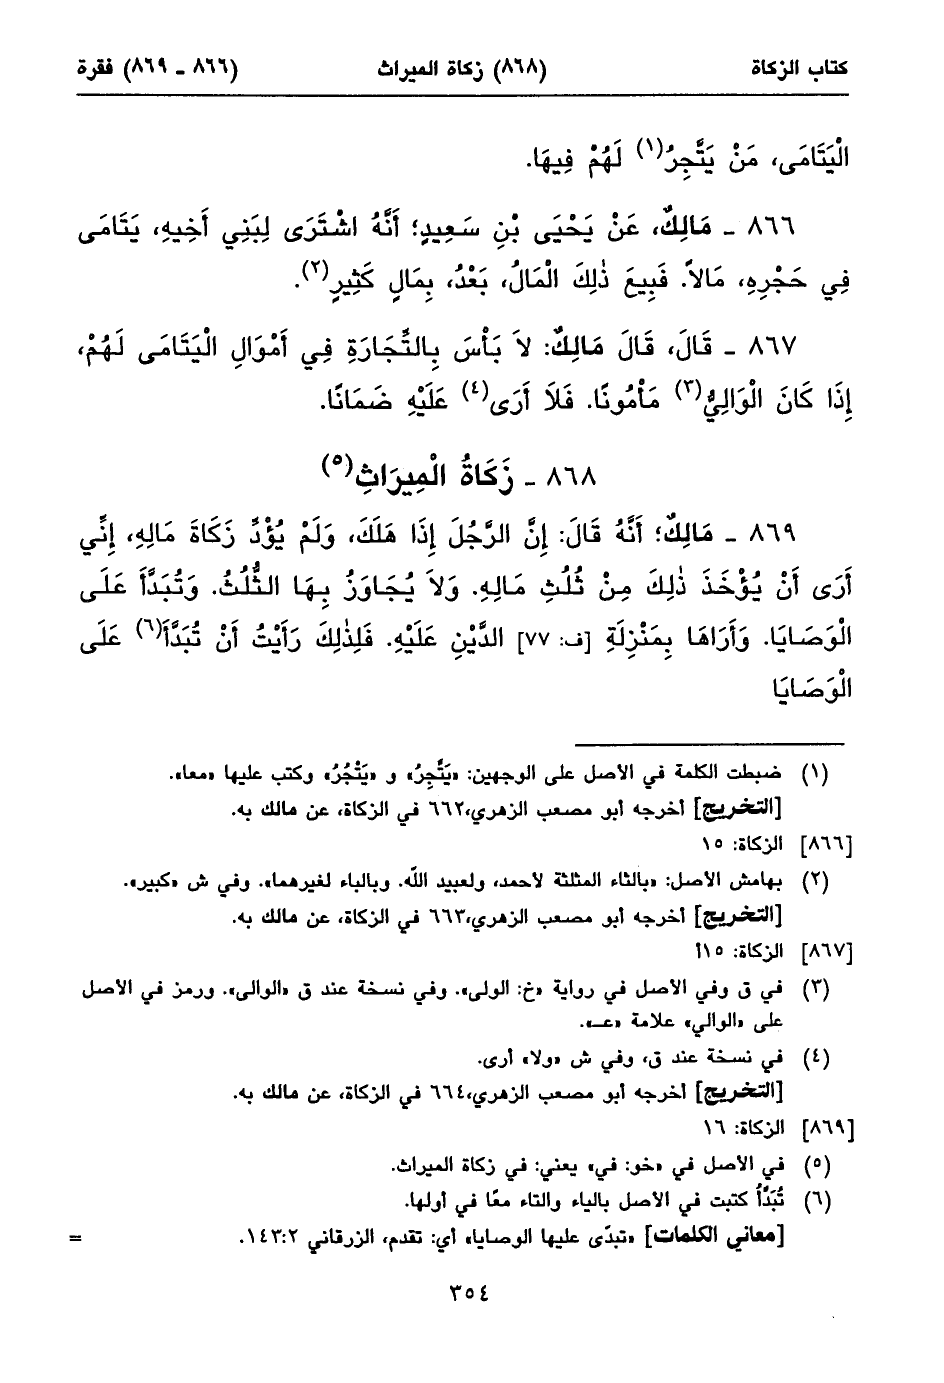 كتاب الزكاة (٨٦٨) زكاة الميراث (٨٦٦ - ٨٦٩) فقرة
الْيَتَامَى، مَنْ يَتَّجِرُ(١) لَهُمْ فِيهَا.
٨٦٦ - مَالِكٌ، عَنْ يَحْيَى بْنِ سَعِيدٍ؛ أَنَّهُ اشْتَرَى لِبَنِي أَخِيهِ، يَتَامَى
فِي حَجْرِهِ، مَالاً. فَبِيعَ ذٰلِكَ الْمَالُ، بَعْدُ، بِمَالٍ كَثِيرٍ(٢).
٨٦٧ - قَالَ، قَالَ مَالِكٌ: لاَ بَأْسَ بِالتِّجَارَةِ فِي أَمْوَالِ الْيَتَامَى لَهُمْ،
إِذَا كَانَ الْوَالِيُّ(٣) مَأْمُونًا. فَلاَ أَرَى(٤) عَلَيْهِ ضَمَانًا.
٨٦٨ - زَكَاةُ الْمِيرَاثِ(٥)
٨٦٩ - مَالِكٌ؛ أَنَّهُ قَالَ: إِنَّ الرَّجُلَ إِذَا هَلَكَ، وَلَمْ يُؤَدِّ زَكَاةَ مَالِهِ، إِنِّي
أَرَى أَنْ يُؤْخَذَ ذٰلِكَ مِنْ ثُلُثِ مَالِهِ. وَلاَ يُجَاوَزُ بِهَا الثُّلُثُ. وَتُبَدَّأَ عَلَى
الْوَصَايَا. وَأَرَاهَا بِمَنْزِلَةِ [ف: ٧٧] الدَّيْنِ عَلَيْهِ. فَلِذٰلِكَ رَأَيْتُ أَنْ تُبَدَّأَ(٦) عَلَى
الْوَصَايَا
(١) ضبطت الكلمة في الاصل على الوجهين: «يَتَّجِرُ» و «يَتْجُرُ» وكتب عليها «معا».
[التخريج] أخرجه أبو مصعب الزهري،٦٦٢ في الزكاة، عن مالك به.
[٨٦٦] الزكاة: ١٥
(٢) بهامش الاصل: «بالثاء المثلثة لاحمد، ولعبيد اللّه. وبالباء لغيرهما». وفي ش «كبير».
[التخريج] أخرجه أبو مصعب الزهري،٦٦٣ في الزكاة، عن مالك به.
[٨٦٧] الزكاة: ١٥أ
(٣) في ق وفي الاصل في رواية «خ: الولى». وفي نسخة عند ق «الوالى». ورمز في الاصل
على «الوالي» علامة «عـ».
(٤) في نسخة عند ق، وفي ش «ولا» أرى.
[التخريج] أخرجه أبو مصعب الزهري،٦٦٤ في الزكاة، عن مالك به.
[٨٦٩] الزكاة: ١٦
(٥) في الاصل في «خو: في» يعني: في زكاة الميراث.
(٦) تُبَدَّأُ كتبت في الاصل بالياء والتاء معًا في أولها.
[معاني الكلمات] «تبدّى عليها الوصايا» أي: تقدم، الزرقاني ١٤٣:٢. =
٣٥٤